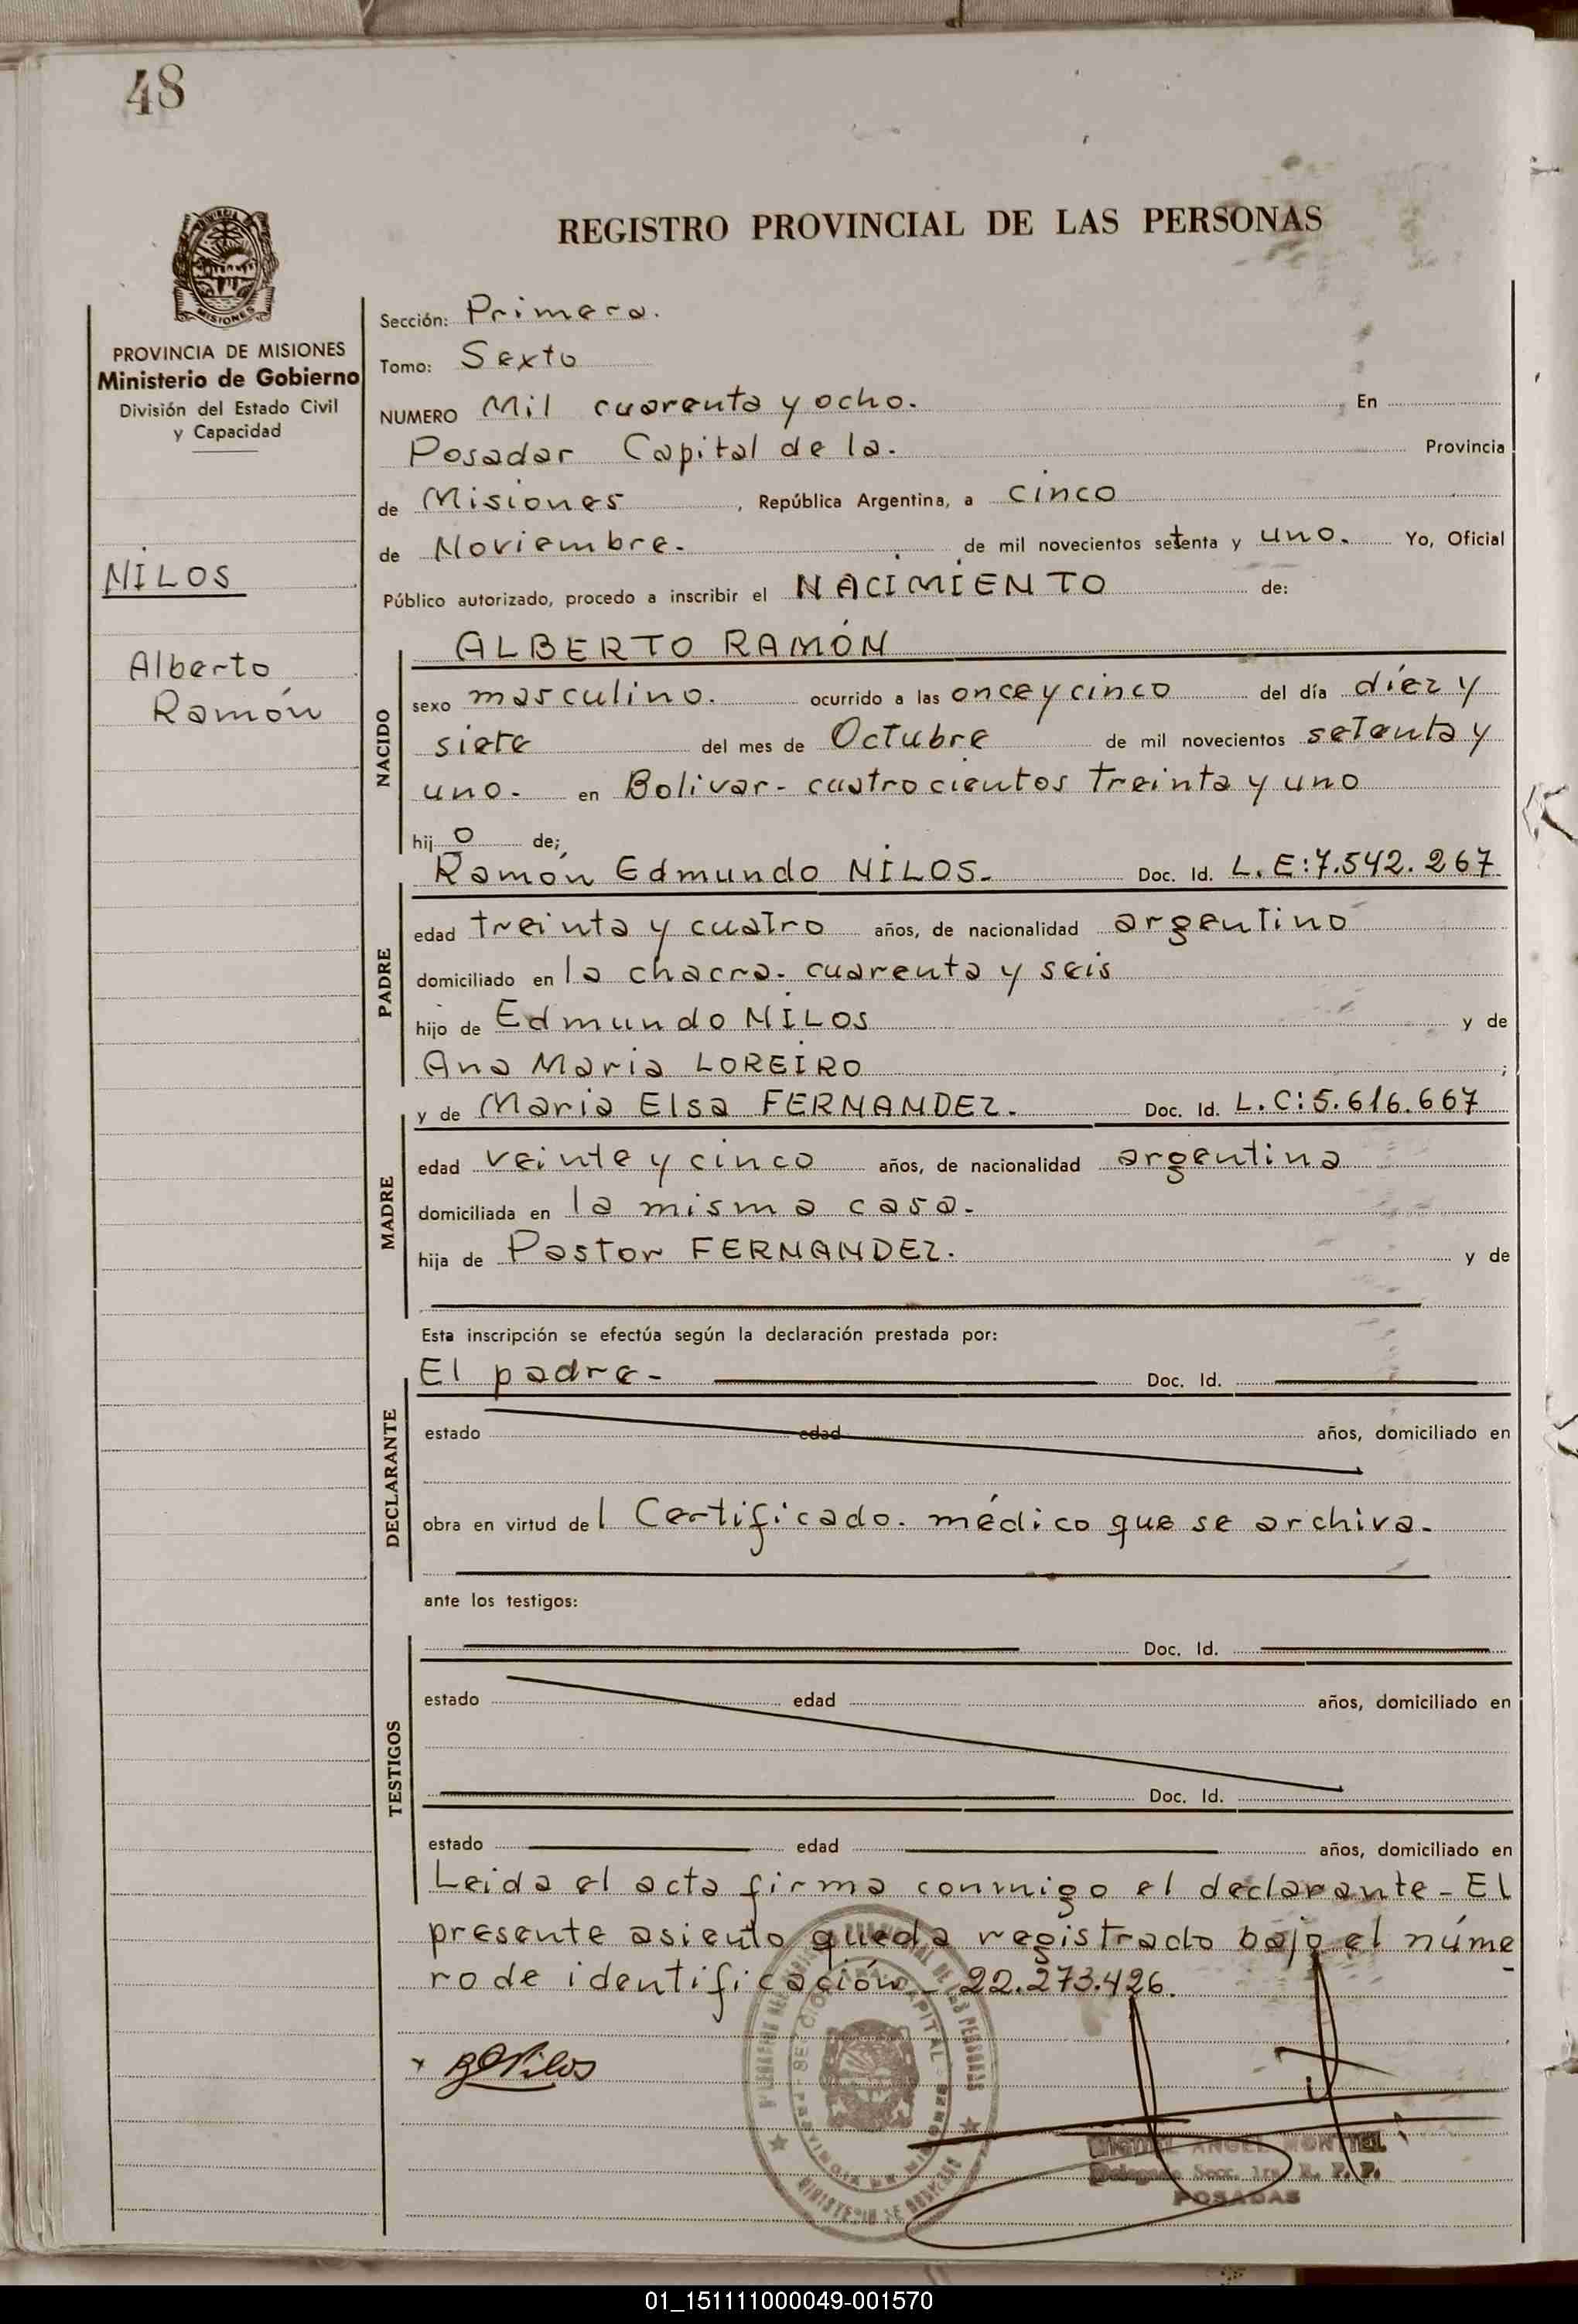 48
REGISTRO PROVINCIAL DE LAS PERSONAS
MISIONES
PROVINCIA DE MISIONES
Ministerio de Gobierno
División del Estado Civil
y Capacidad
NILOS
Alberto
Ramón
Sección: Primera.
Tomo: Sexto
NUMERO Mil cuarenta y ocho. En
Posadas Capital de la. Provincia
de Misiones, República Argentina, a cinco
de Noviembre. de mil novecientos setenta y uno. Yo, Oficial
Público autorizado, procedo a inscribir el NACIMIENTO de:
NACIDO
ALBERTO RAMÓN
sexo masculino. ocurrido a las once y cinco del día diez y
siete del mes de Octubre de mil novecientos setenta y
uno. en Bolivar - cuatrocientos treinta y uno
hijo de;
PADRE
Ramón Edmundo NILOS. Doc. Id. L.E: 7.542.267
edad treinta y cuatro años, de nacionalidad argentino
domiciliado en la chacra. cuarenta y seis
hijo de Edmundo NILOS y de
Ana Maria LOREIRO;
MADRE
y de Maria Elsa FERNANDEZ. Doc. Id. L.C: 5.616.667
edad veinte y cinco años, de nacionalidad argentina
domiciliada en la misma casa.
hija de Pastor FERNANDEZ. y de
Esta inscripción se efectúa según la declaración prestada por:
DECLARANTE
El padre- Doc. Id.
estado edad años, domiciliado en
obra en virtud del Certificado. médico que se archiva.
ante los testigos:
TESTIGOS
Doc. Id.
estado edad años, domiciliado en
Doc. Id.
estado edad años, domiciliado en
Leida el acta firma conmigo el declarante - El
presente asiento queda registrado bajo el núme
ro de identificación - 22.273.426.
Nilos
MIGUEL ANGEL MONTIEL
Delegado Secc. 1ra R. P. P.
POSADAS
01_151111000049-001570